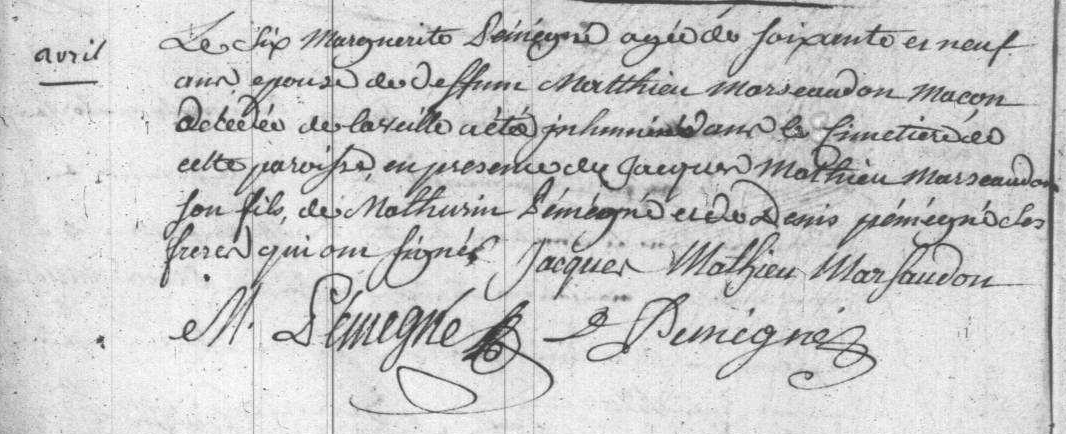 avril
Le six Marguerite Pémégné agée de soixante et neuf
ans, epouse de deffunt Matthieu Marseaudon Macon
décédée de la veille a été inhumée dans le Cimetiere de
cette paroisse, en presence de Jacques Mathieu Marseaudon
son fils, de Mathurin Pémégné et de Denis pémégné ses
freres qui ont signés Jacques Mathieu Marsaudon
M. Pémegné D Pemégné